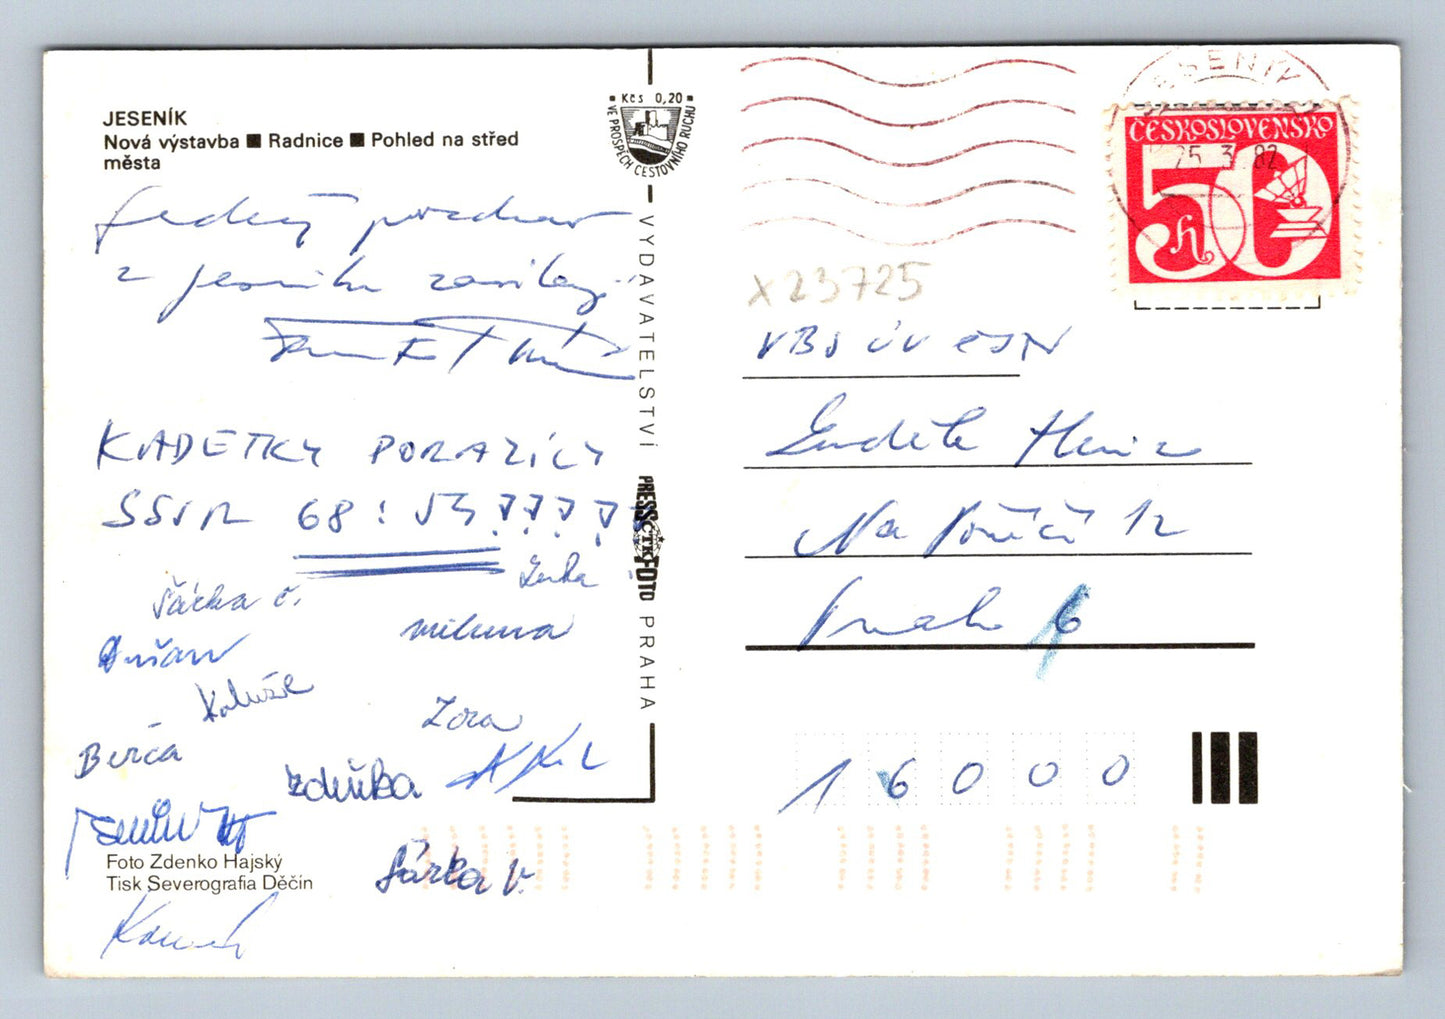 JESENÍK
Nová výstavba ■ Radnice ■ Pohled na střed
města
pozdrav
z Jeseníku
KADETKY PORAZILY
SSSR 68:53
Šárka č.
Miluna
Dušan
Zora
Berča
Zdeňka
Šárka V.
Foto Zdenko Hajský
Tisk Severografia Děčín
Kčs 0,20
VE PROSPĚCH CESTOVNÍHO RUCHU
VYDAVATELSTVÍ PRESSFOTO PRAHA
ČTK
JESENÍK
25. 3. 82
ČESKOSLOVENSKO
50 h
x23725
VBS ÚV ČSTV
Luděk
Na Poříčí 12
Praha 6
16000